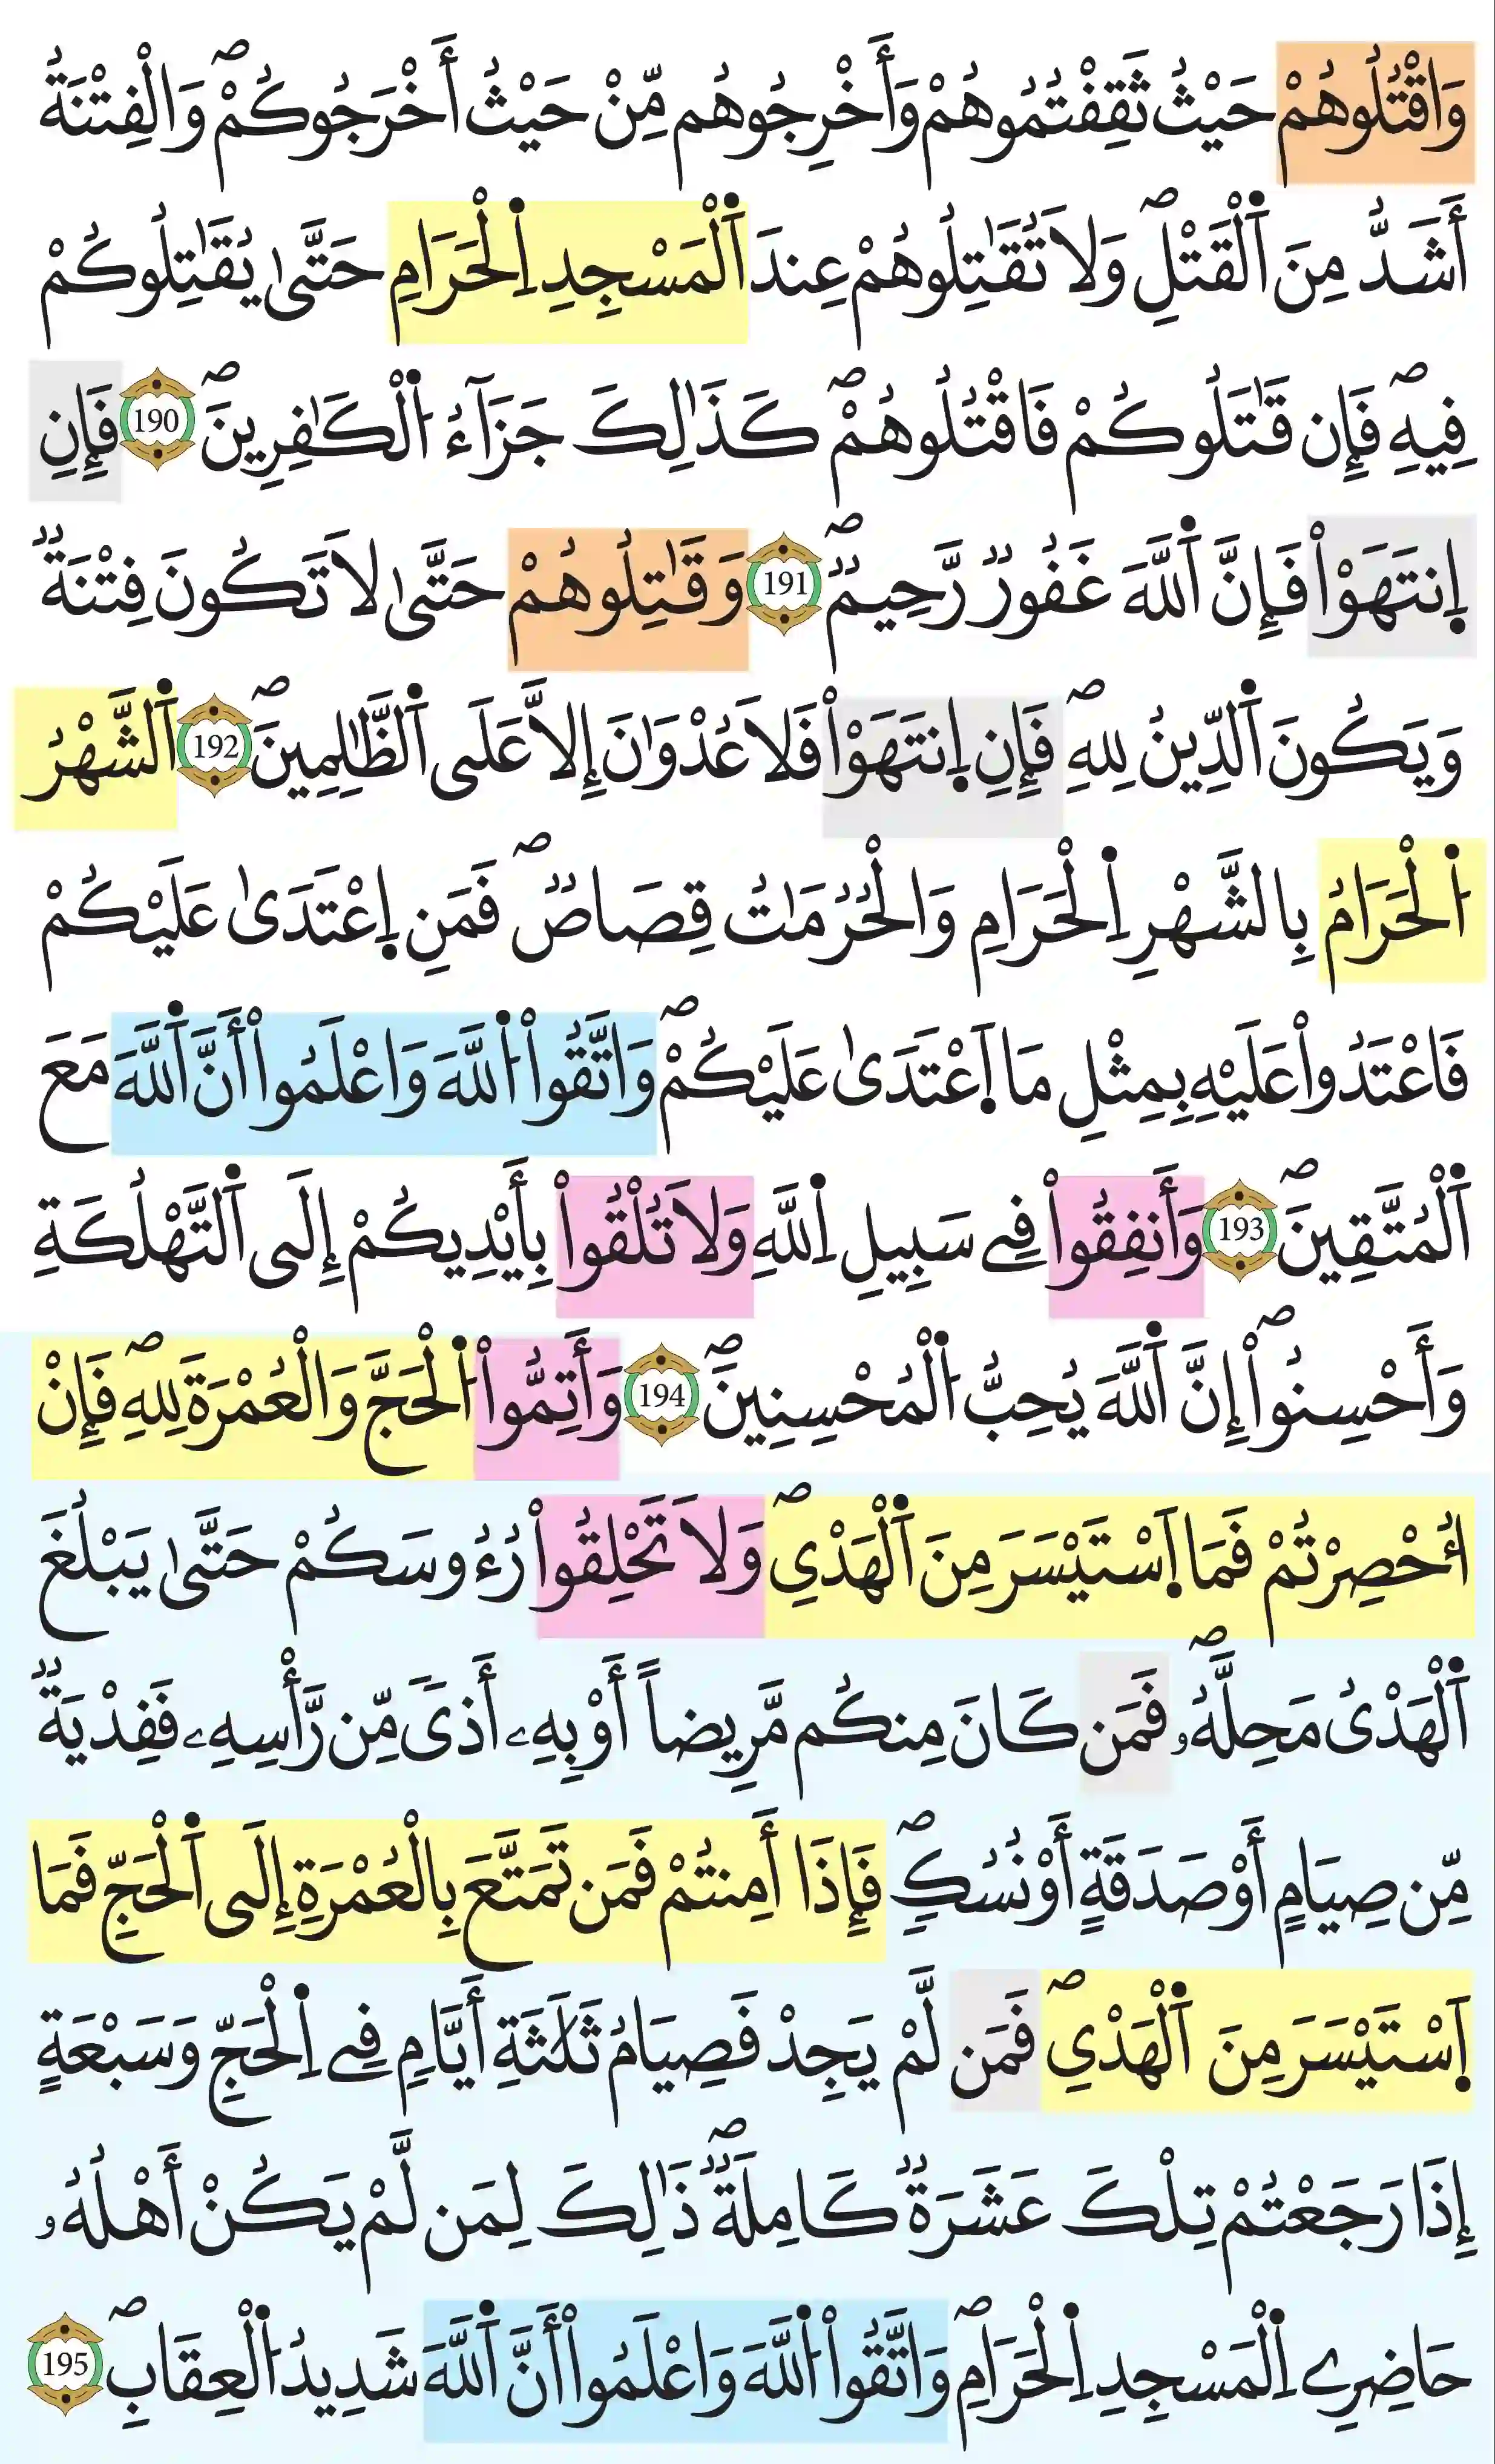 وَاقْتُلُوهُمْ حَيْثُ ثَقِفْتُمُوهُمْ وَأَخْرِجُوهُم مِّنْ حَيْثُ أَخْرَجُوكُمْۖ وَالْفِتْنَةُ
أَشَدُّ مِنَ اَ۬لْقَتْلِۖ وَلَا تُقَٰتِلُوهُمْ عِندَ اَ۬لْمَسْجِدِ اِ۬لْحَرَامِ حَتَّىٰ يُقَٰتِلُوكُمْ
فِيهِۖ فَإِن قَٰتَلُوكُمْ فَاقْتُلُوهُمْۖ كَذَٰلِكَ جَزَآءُ اُ۬لْكَٰفِرِينَۖ 190 فَإِنِ
اِ۪نتَهَوْاْ فَإِنَّ اَ۬للَّهَ غَفُورٌ رَّحِيمٌۖ 191 وَقَٰتِلُوهُمْ حَتَّىٰ لَا تَكُونَ فِتْنَةٌ
وَيَكُونَ اَ۬لدِّينُ لِلهِۖ فَإِنِ اِ۪نتَهَوْاْ فَلَا عُدْوَٰنَ إِلَّا عَلَى اَ۬لظَّٰلِمِينَۖ 192 اَ۬لشَّهْرُ
اُ۬لْحَرَامُ بِالشَّهْرِ اِ۬لْحَرَامِ وَالْحُرُمَٰتُ قِصَاصٌۖ فَمَنِ اِ۪عْتَدَىٰ عَلَيْكُمْ
فَاعْتَدُواْ عَلَيْهِ بِمِثْلِ مَا اَ۪عْتَدَىٰ عَلَيْكُمْۖ وَاتَّقُواْ اُ۬للَّهَ وَاعْلَمُواْ أَنَّ اَ۬للَّهَ مَعَ
اَ۬لْمُتَّقِينَۖ 193 وَأَنفِقُواْ فِے سَبِيلِ اِ۬للَّهِ وَلَا تُلْقُواْ بِأَيْدِيكُمْ إِلَى اَ۬لتَّهْلُكَةِ
وَأَحْسِنُواْۖ إِنَّ اَ۬للَّهَ يُحِبُّ اُ۬لْمُحْسِنِينَۖ 194 وَأَتِمُّواْ اُ۬لْحَجَّ وَالْعُمْرَةَ لِلهِۖ فَإِنْ
اُحْصِرْتُمْ فَمَا اَ۪سْتَيْسَرَ مِنَ اَ۬لْهَدْيِۖ وَلَا تَحْلِقُواْ رُءُوسَكُمْ حَتَّىٰ يَبْلُغَ
اَ۬لْهَدْيُ مَحِلَّهُۥۖ فَمَن كَانَ مِنكُم مَّرِيضاً أَوْ بِهِۦ أَذىٗ مِّن رَّأْسِهِۦ فَفِدْيَةٌ
مِّن صِيَامٍ أَوْ صَدَقَةٍ أَوْ نُسُكٍۖ فَإِذَا أَمِنتُمْ فَمَن تَمَتَّعَ بِالْعُمْرَةِ إِلَى اَ۬لْحَجِّ فَمَا
اَ۪سْتَيْسَرَ مِنَ اَ۬لْهَدْيِۖ فَمَن لَّمْ يَجِدْ فَصِيَامُ ثَلَٰثَةِ أَيَّامٍ فِے اِ۬لْحَجِّ وَسَبْعَةٍ
إِذَا رَجَعْتُمْ تِلْكَ عَشَرَةٌ كَامِلَةٌۖ ذَٰلِكَ لِمَن لَّمْ يَكُنْ أَهْلُهُۥ
حَاضِرِے اِ۬لْمَسْجِدِ اِ۬لْحَرَامِۖ وَاتَّقُواْ اُ۬للَّهَ وَاعْلَمُواْ أَنَّ اَ۬للَّهَ شَدِيدُ اُ۬لْعِقَابِۖ 195